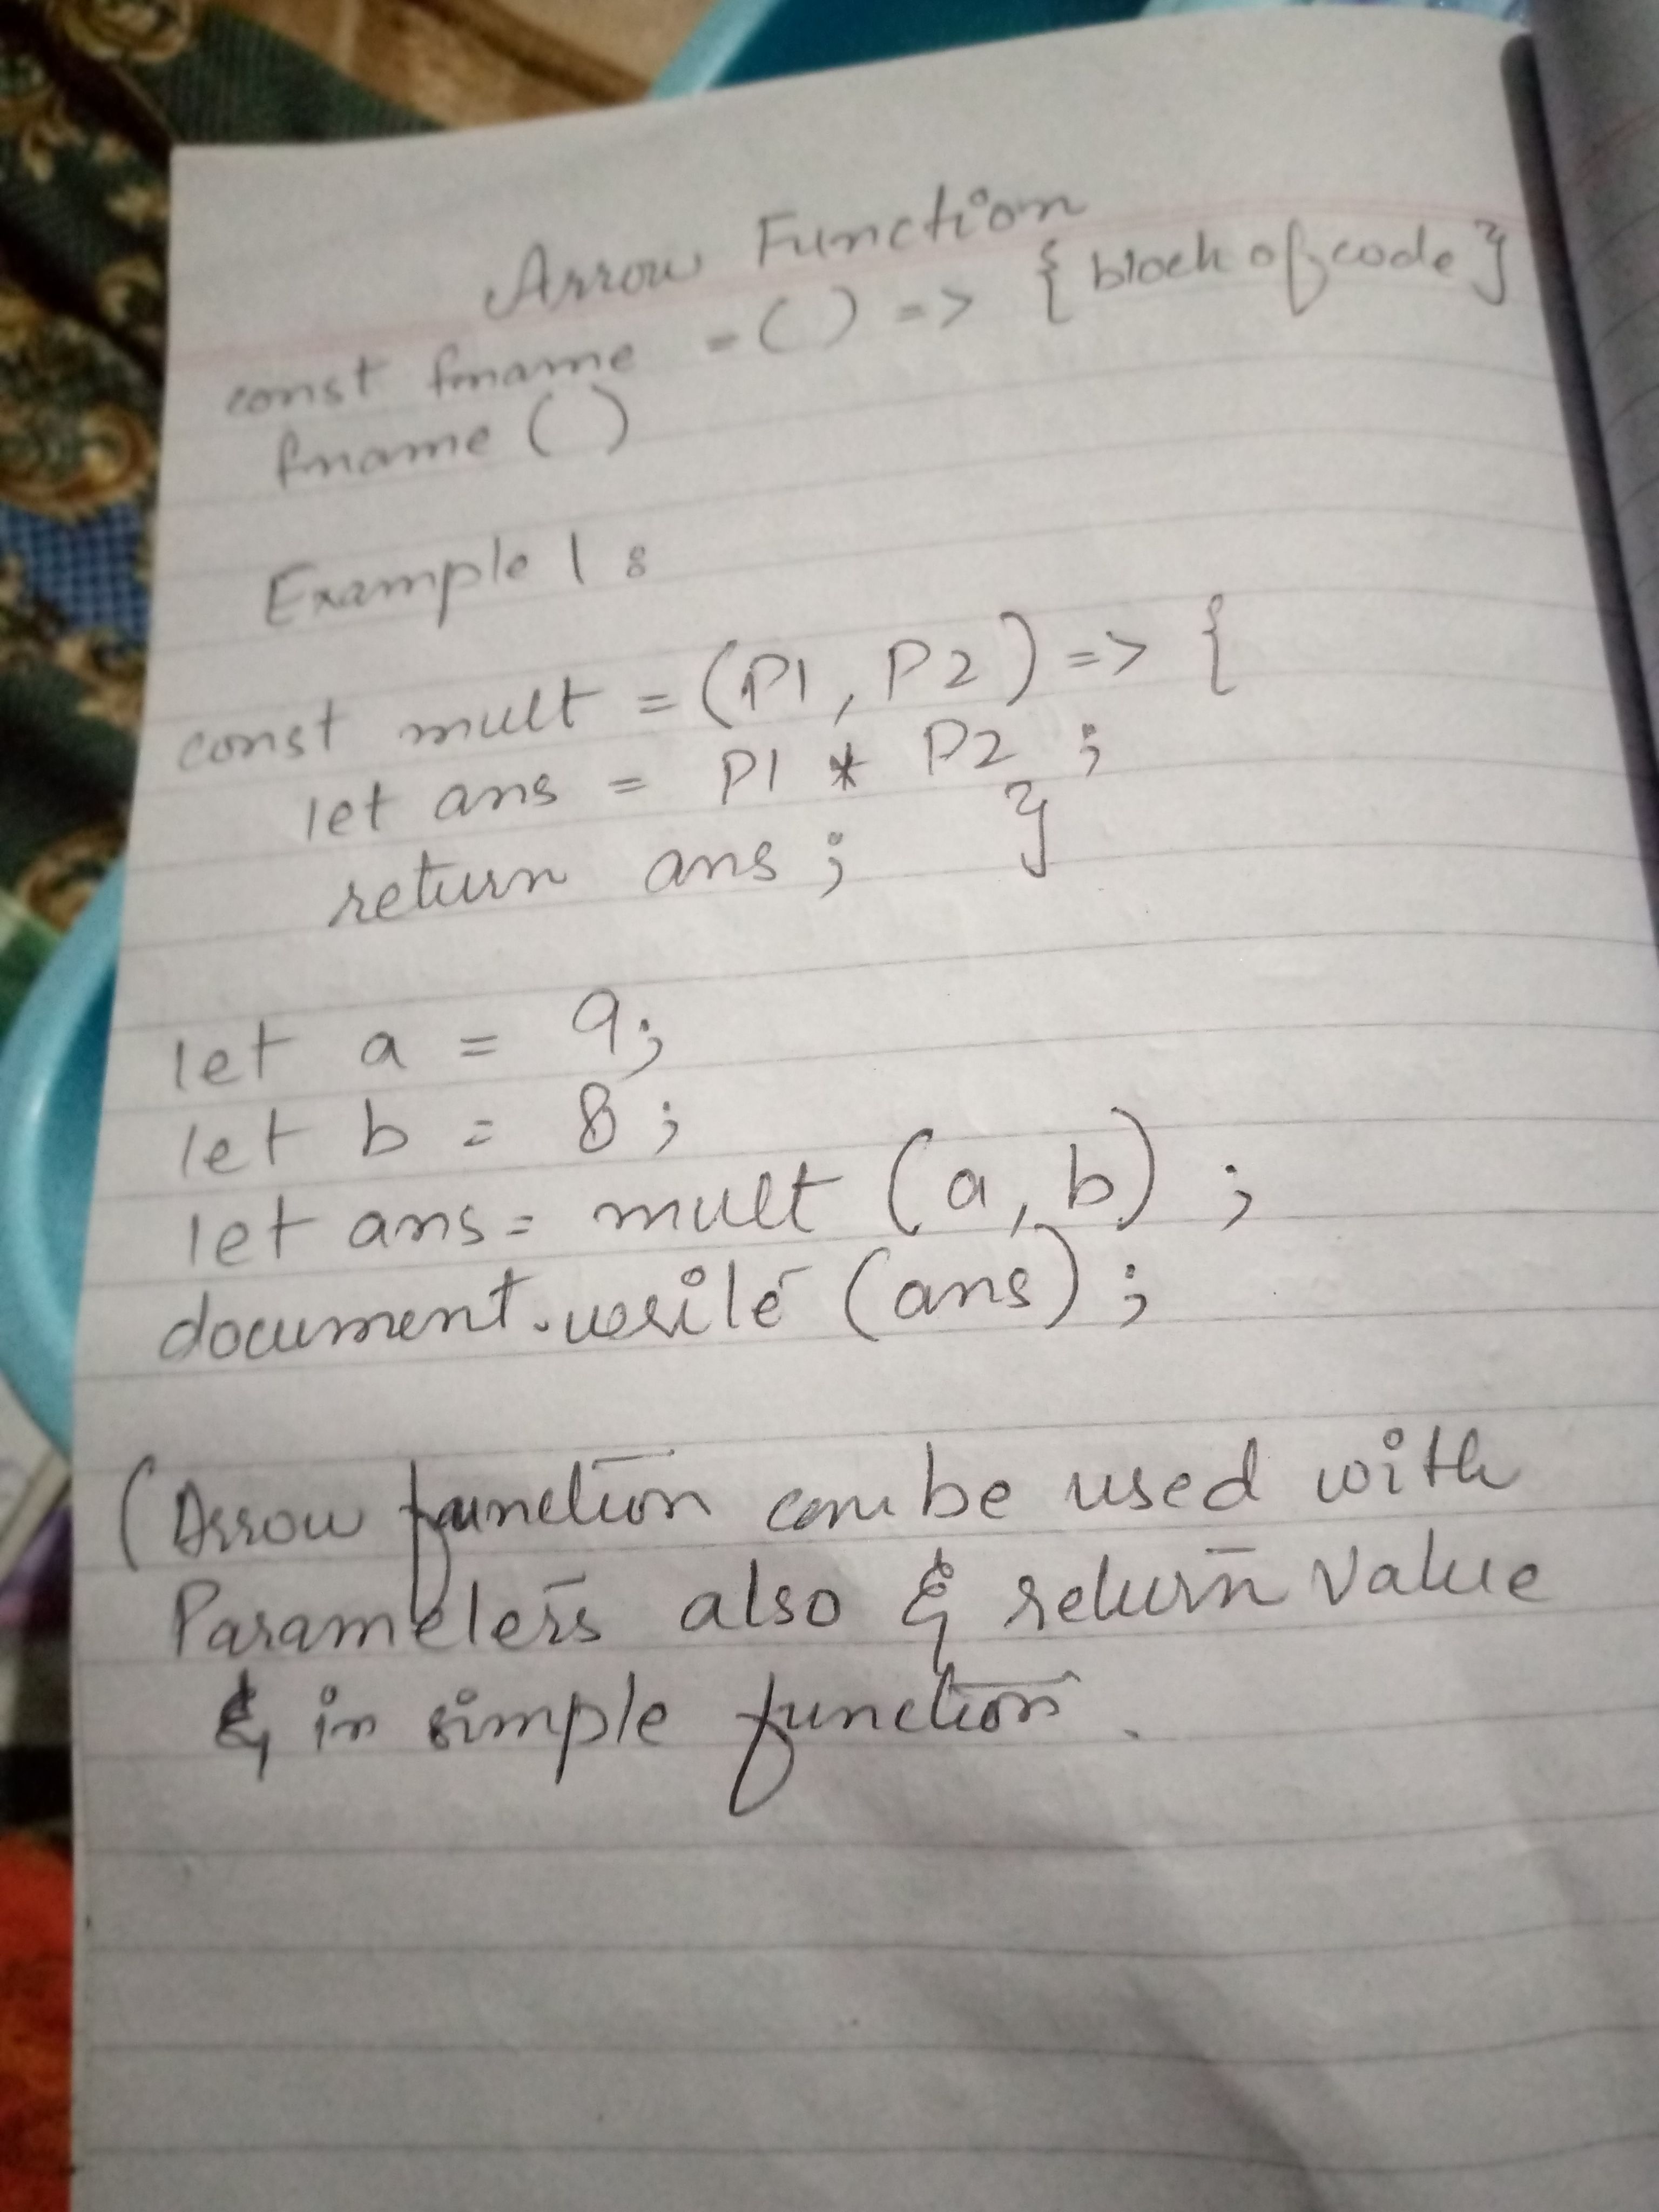 Arrow Function
const fname = ( ) => { block of code }
fname ( )
Example 1 :
const mult = (P1, P2) => {
let ans = P1 * P2 ;
return ans ; }
let a = 9;
let b = 8 ;
let ans = mult (a, b) ;
document.write (ans) ;
(Arrow function can be used with
Parameters also & return value
& in simple function.